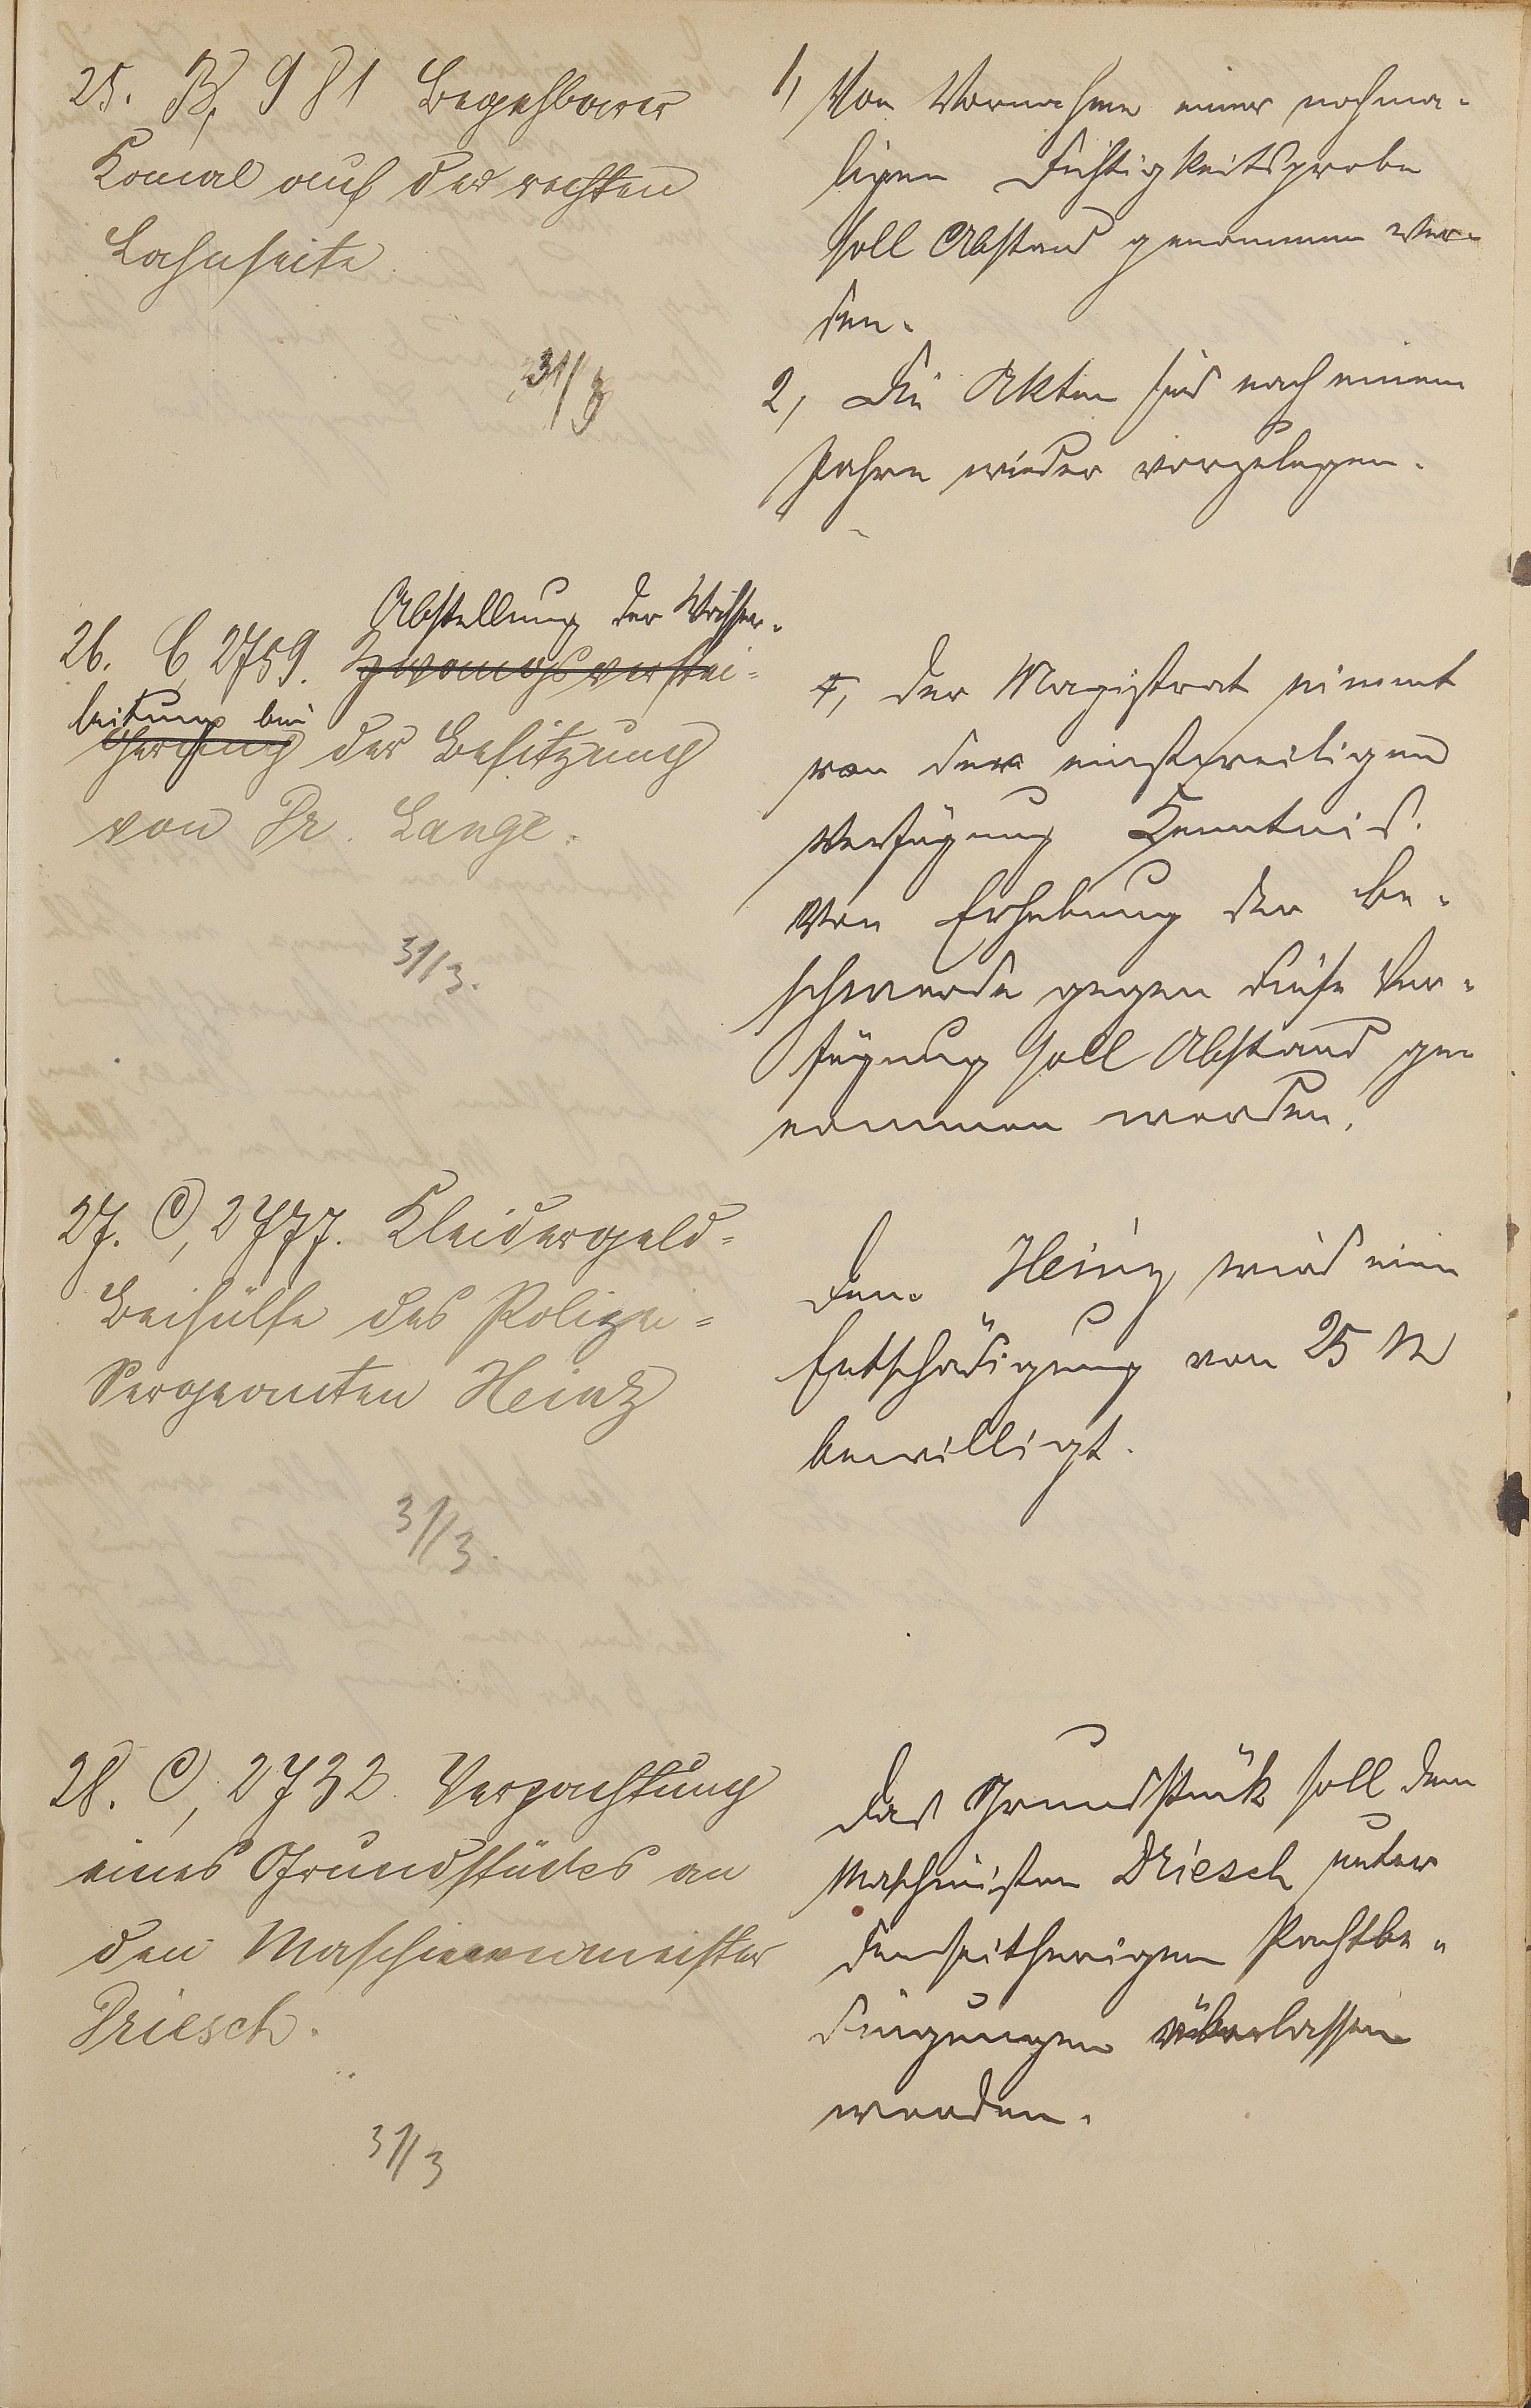 25. B, 981 Begehbarer
Kanal auf der rechten
Lahnseite.
31/3
1, Von Vornahme einer nochma-
ligen Dichtigkeitsprobe
soll Abstand genommen wer-
den.
2, Die Akten sind nach einem
Jahre wieder vorzulegen.
Abstellung der Wasser-
26. C, 2759. Zwangsverstei-
leitung bei
gerung der Besitzung
von Dr. Lange.
31/3.
Der Magistrat nimmt
von der einstweiligen
Verfügung Kenntnis.
Von Erhebung der Be-
schwerde gegen diese Ver-
fügung soll Abstand ge-
nommen werden.
27. C, 2777. Kleidergeld-
Beihülfe des Polizei-
Sergeanten Heinz
31/3.
Dem Heinz wird eine
Entschädigung von 25 M
bewilligt.
28. C, 2732 Verpachtung
eines Grundstückes an
den Maschinenmeister
Driesch.
31/3
Das Grundstück soll dem
Maschinisten Driesch unter
den seitherigen Pachtbe-
dingungen überlassen
werden.